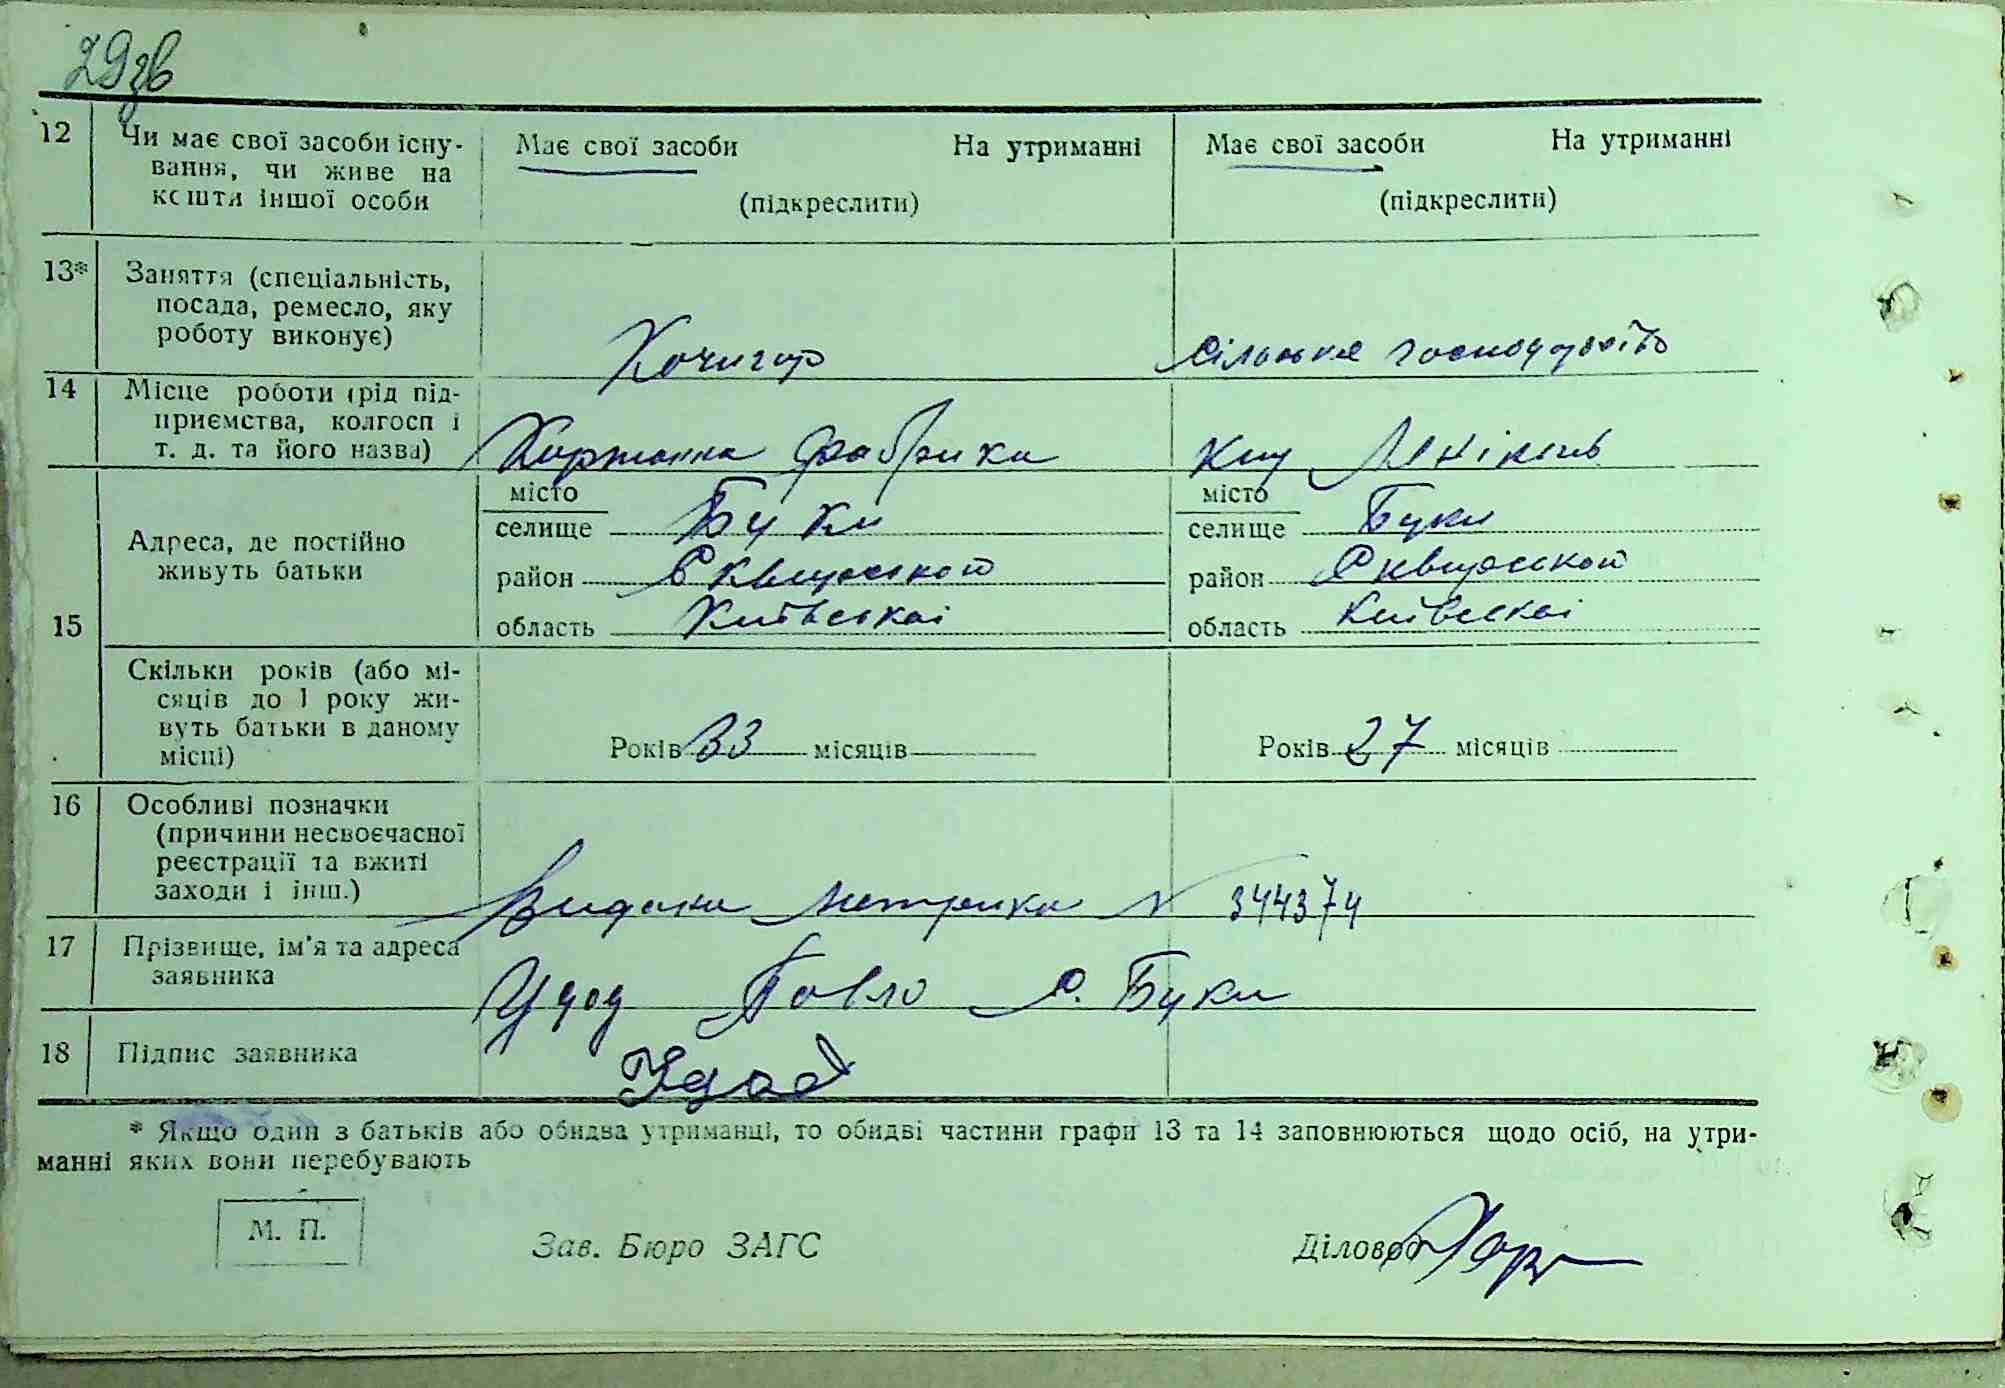 29зв
12 Чи має свої засоби існу- Має свої засоби На утриманні Має свої засоби На утриманні
вання, чи живе на
кошти іншої особи (підкреслити) (підкреслити)
13* Заняття (спеціальність,
посада, ремесло, яку
роботу виконує) Кочигар Сільське господарство
14 Місце роботи (рід під-
приємства, колгосп і
т. д. та його назва) фабрика
місто місто
селище Буки селище Буки
15 Адреса, де постійно
живуть батьки
район Сквирської район Сквирської
область Київської область Київскої
Скільки років (або мі-
сяців до 1 року жи-
вуть батьки в даному
місці) Років 33 місяців Років 27 місяців
16 Особливі позначки
(причини несвоєчасної
реєстрації та вжиті
заходи і інш.) Видана Метрика N 344374
17 Прізвище, ім'я та адреса
заявника Удод Павло с. Буки
18 Підпис заявника Удод
* Якщо один з батьків або обидва утриманці, то обидві частини графи 13 та 14 заповнюються щодо осіб, на утри-
манні яких вони перебувають
М. П. Зав. Бюро ЗАГС Діловод